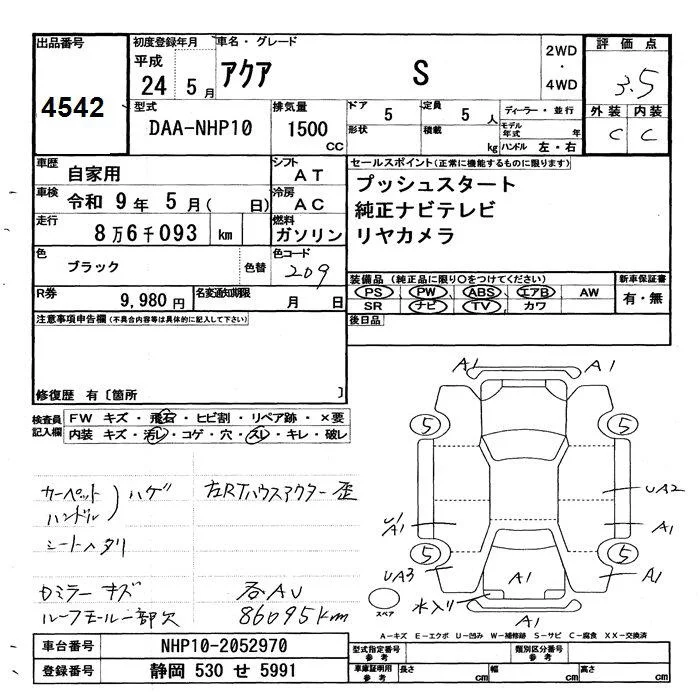 出品番号 初度登録年月 車名・グレード 2WD・4WD 評価点
4542 平成 24 5月 アクア S 3.5
型式 排気量 ドア 5 定員 5人 ディーラー・並行 外装 内装
DAA-NHP10 1500cc 形状 積載 kg モデル年式 年 C C
ハンドル 左・右
車歴 自家用 シフト AT セールスポイント(正常に機能するものに限ります)
車検 令和 9年 5月( 日) 冷房 AC プッシュスタート
走行 8万6千093 km 燃料 ガソリン 純正ナビテレビ
リヤカメラ
色 ブラック 色替 色コード 209
装備品 (純正品に限り○をつけてください) 新車保証書
R券 9,980円 名変通知期限 月 日 PS PW ABS エアB AW 有・無
SR ナビ TV カワ
注意事項申告欄(不具合内容等は具体的に記入して下さい) 後日品
修復歴 有〔箇所 〕
検査員記入欄 FW キズ・飛石・ヒビ割・リペア跡・×要
内装 キズ・汚レ・コゲ・穴・スレ・キレ・破レ
カーペット ハゲ 左RTハウスアクター歪
ハンドル
シートヘタリ
ミラーキズ 各AU
ルーフモール一部欠 86095km
A1 A1
5 5
UA2
A1 A1
5 5
UA3 A1 A1
水入り
スペア A1
A-キズ E-エクボ U-凹み W-補修跡 S-サビ C-腐食 XX-交換済
車台番号 NHP10-2052970 型式指定番号 参考 類別区分番号 参考
登録番号 静岡 530 せ 5991 車庫証明用 参考 長さ cm 幅 cm 高さ cm